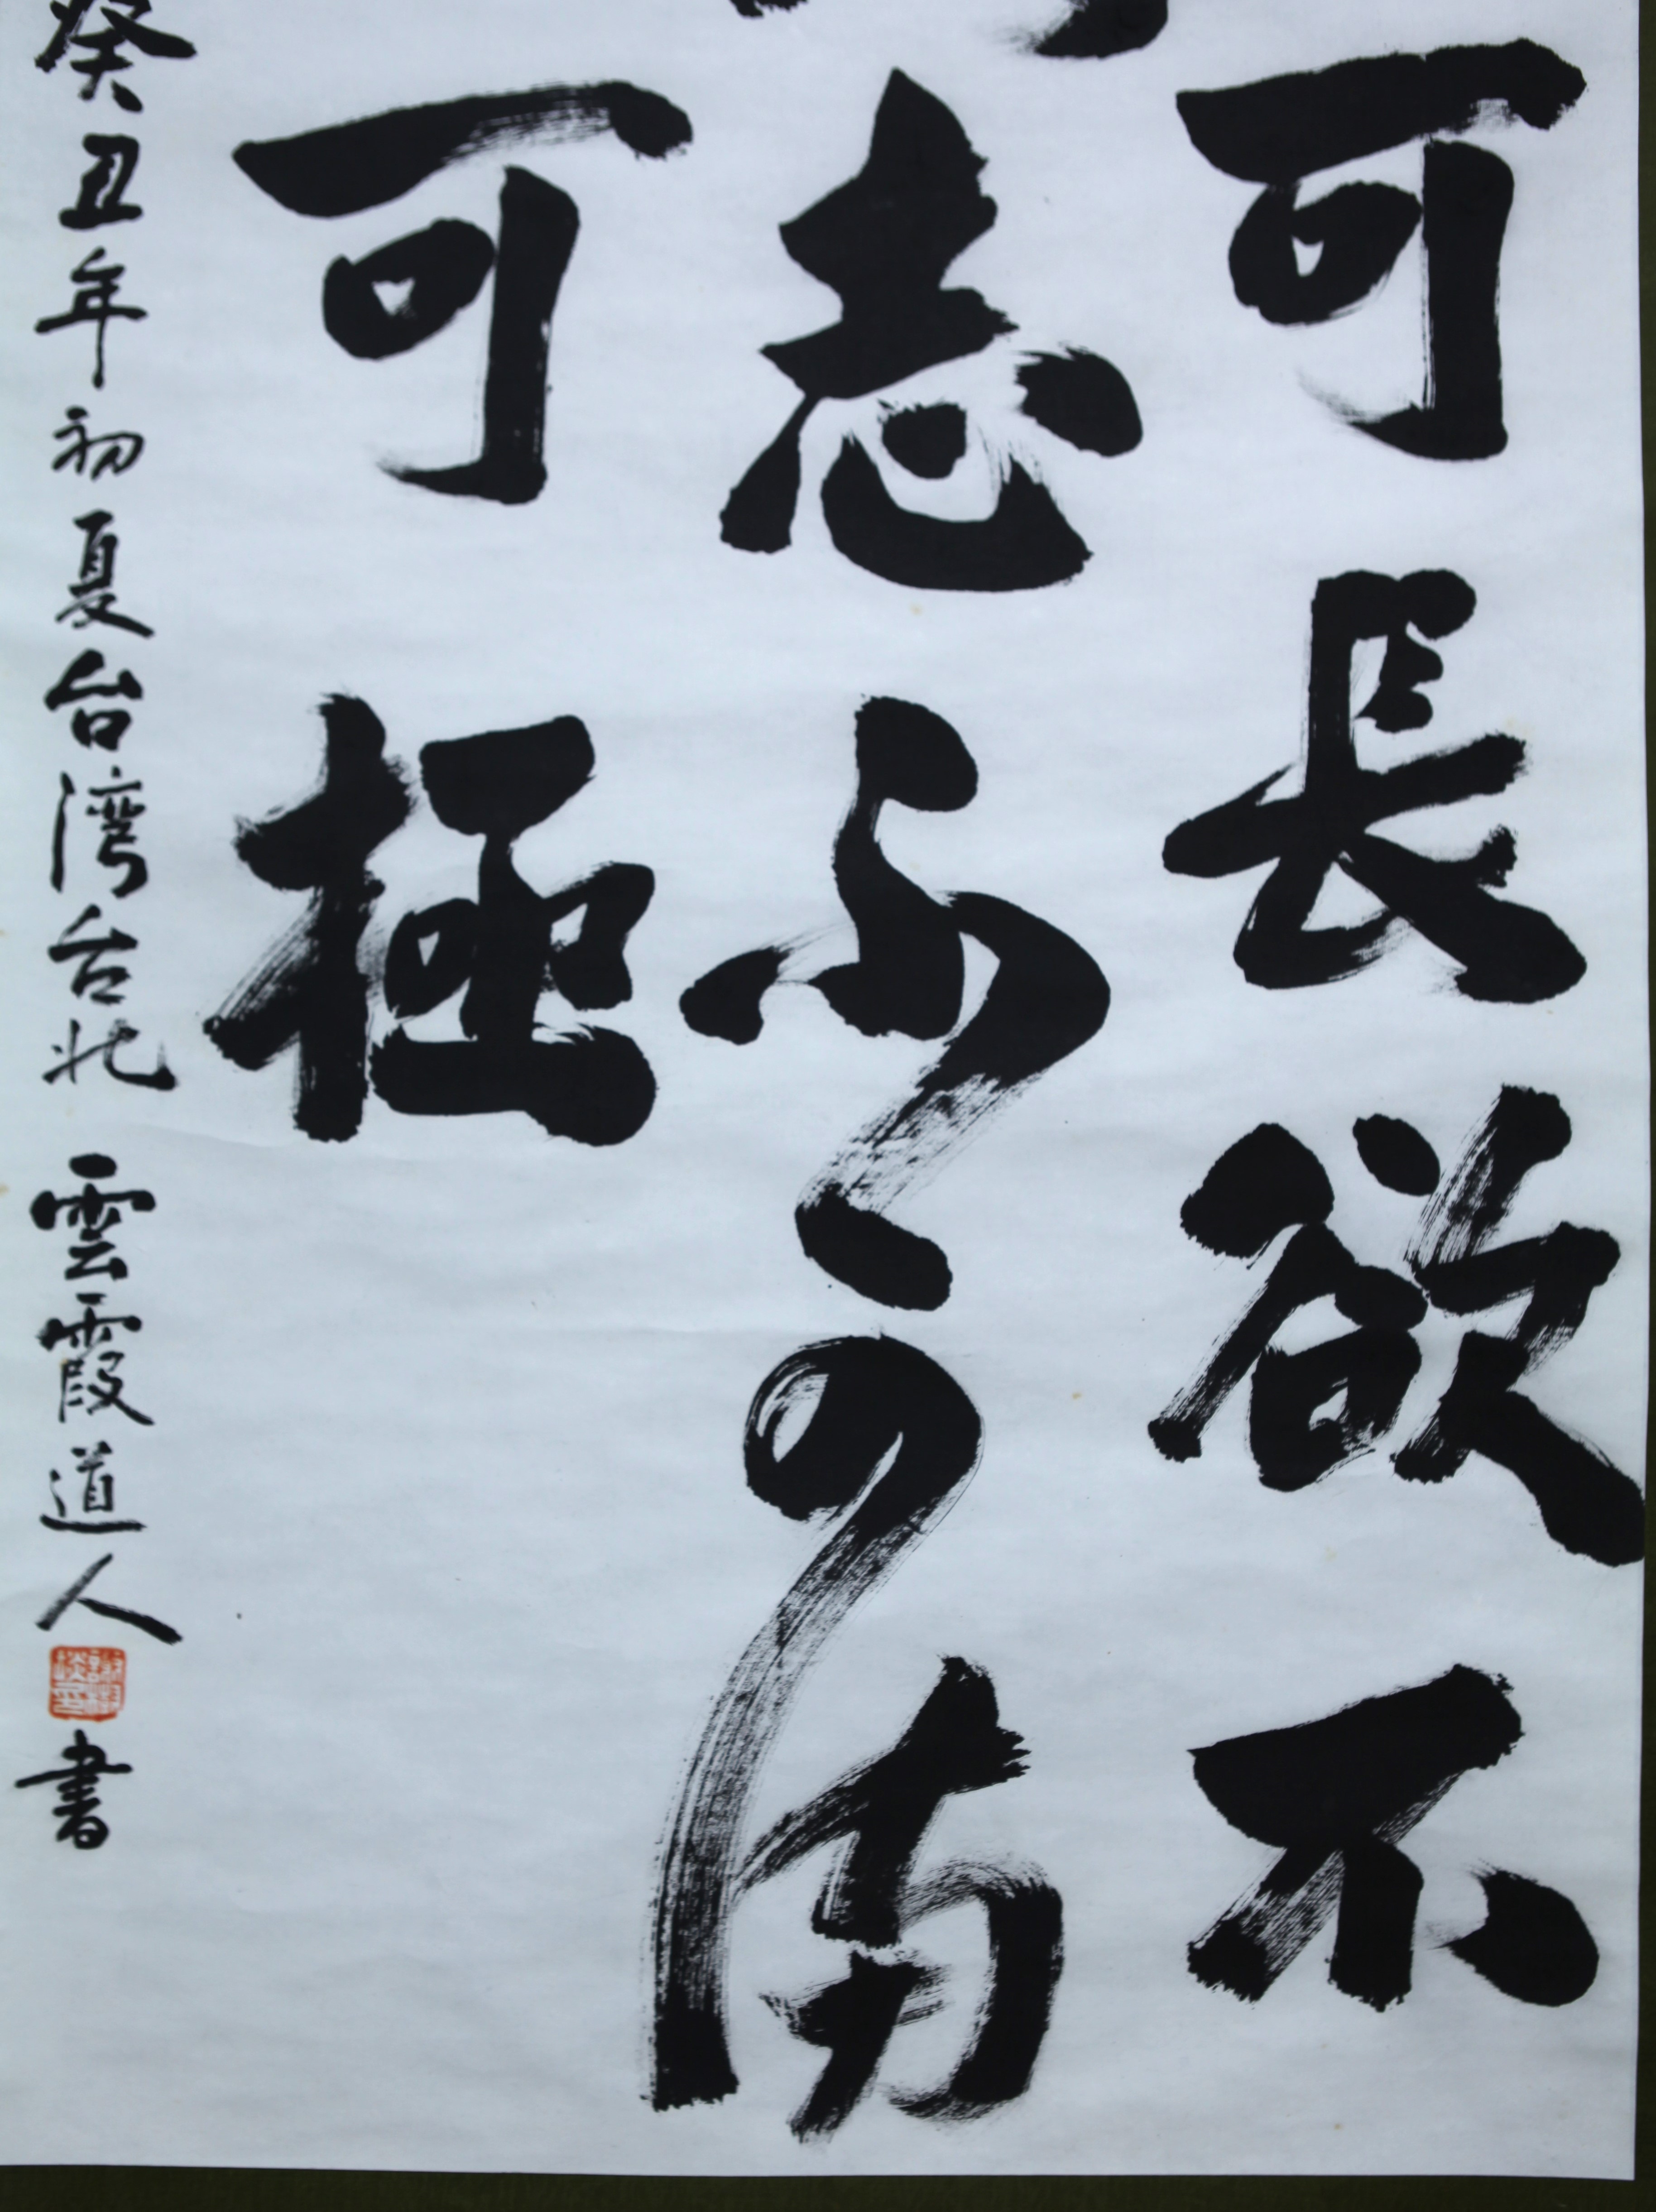 可長欲不
志不可滿
可極
癸丑年初夏台湾台北 雲霞道人 書